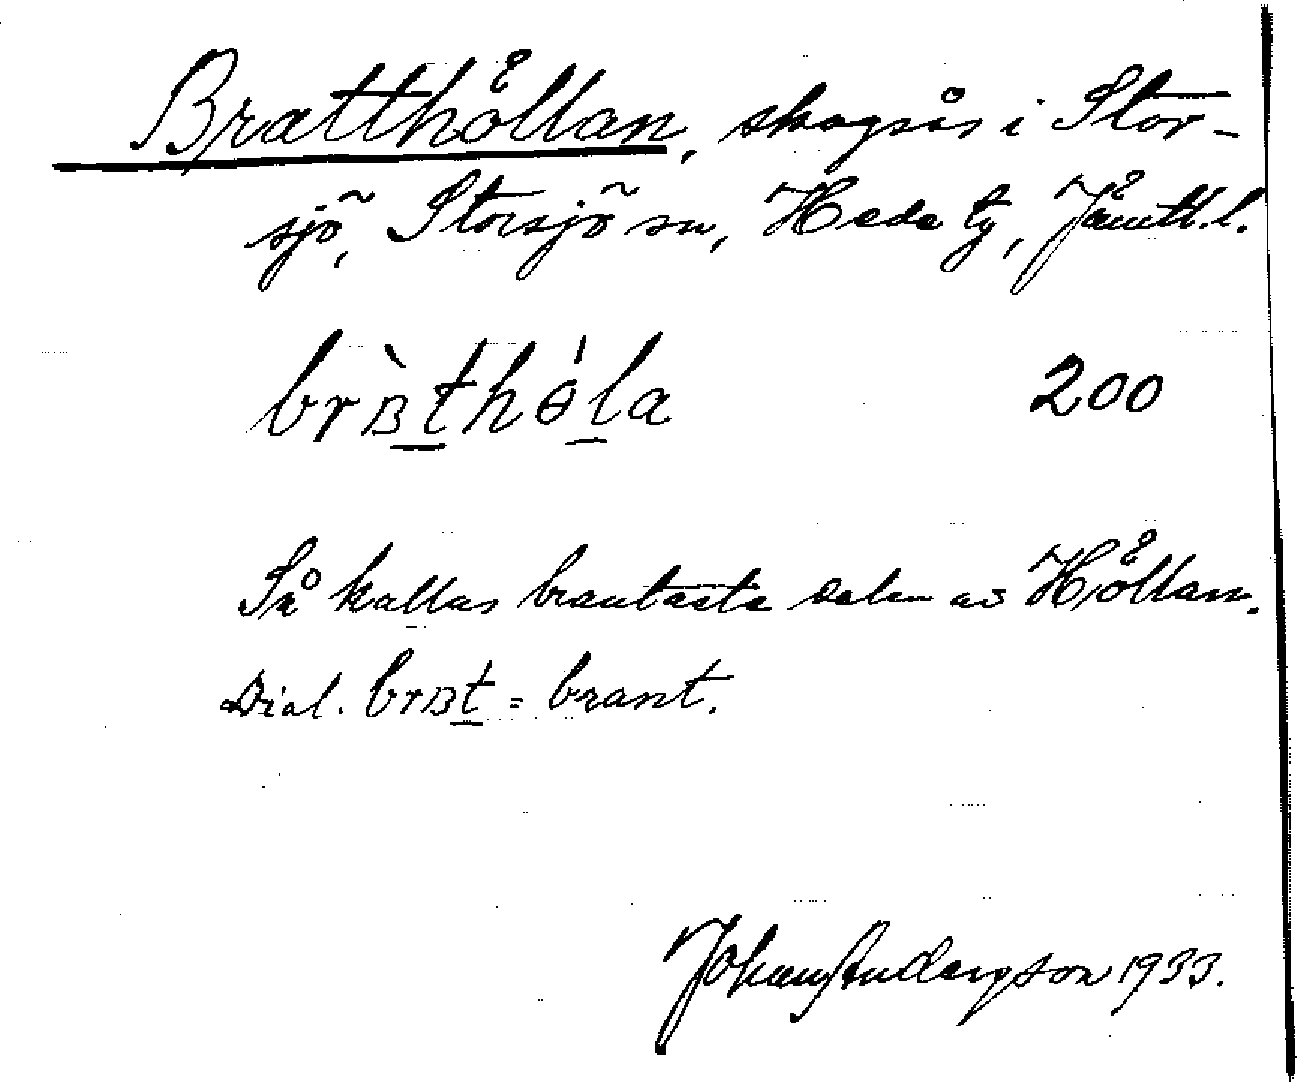 Bratthållan, skogsås i Stor-
sjö, Storsjö sn, Hede tg, Jämtl. l.
brʙ̀t̲hɵ́l̲a 200
Så kallas brantaste delen av Hållan.
Dial. brʙt̲ = brant.
Johan Anderson 1933.